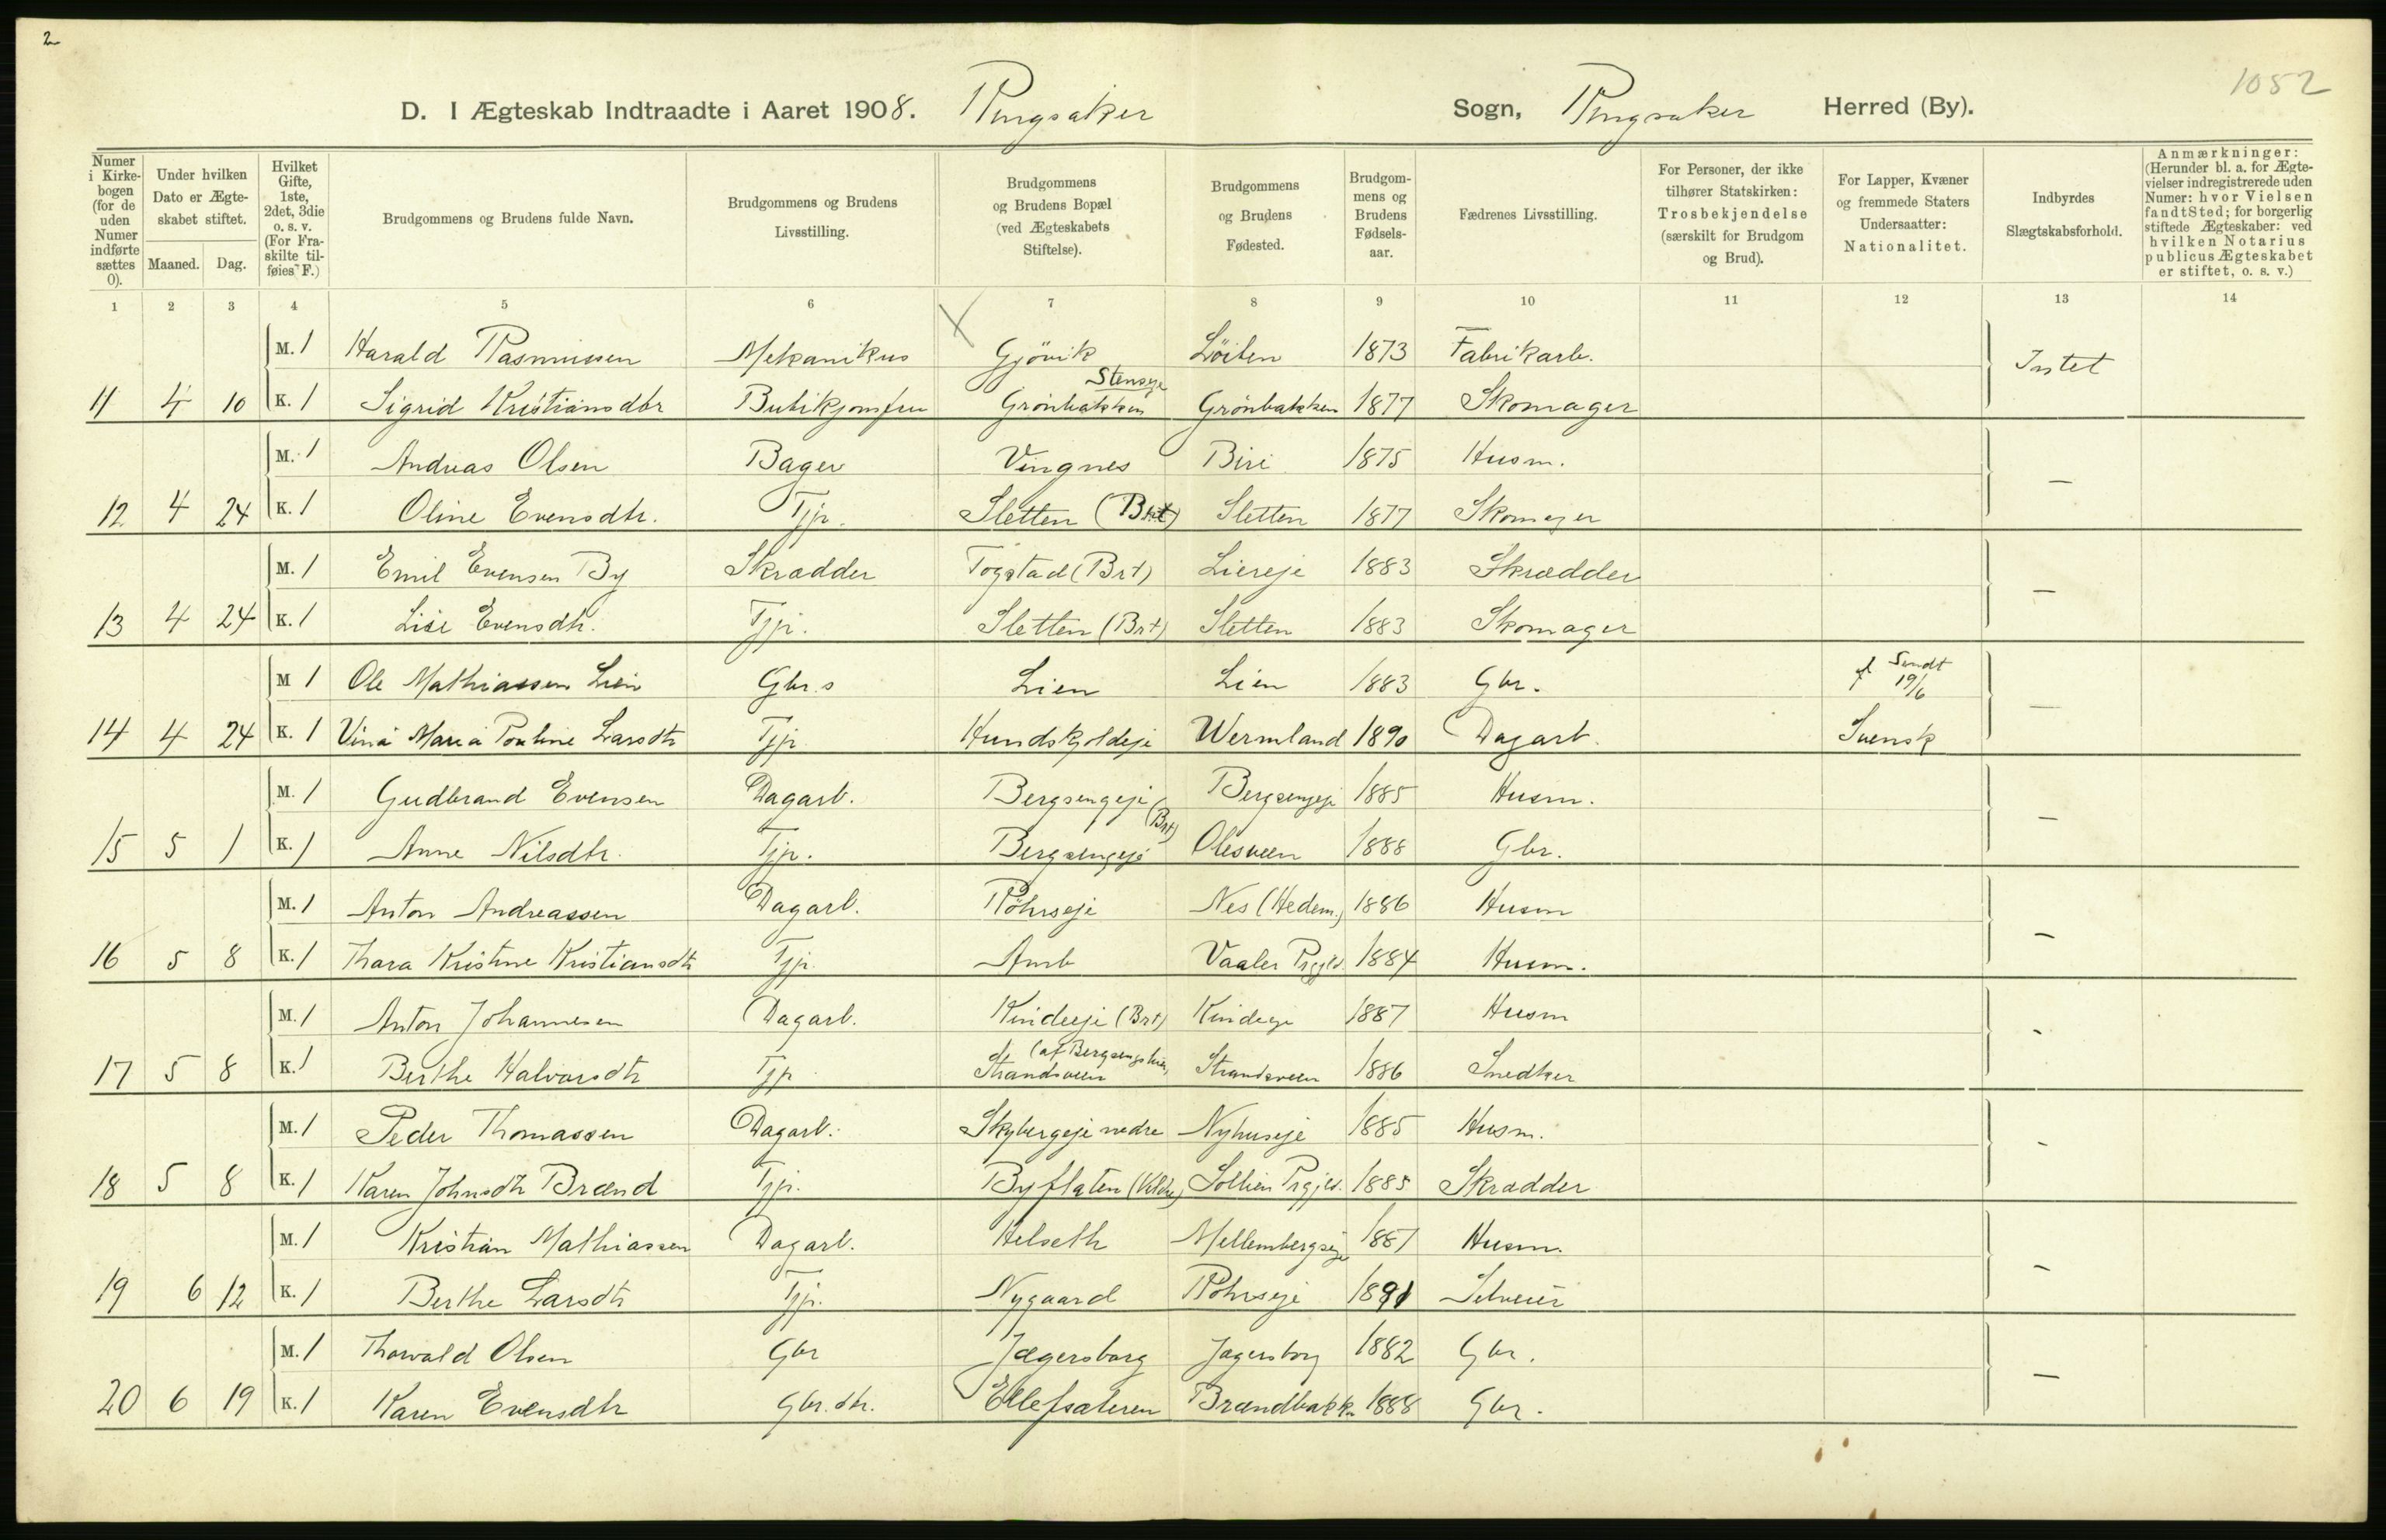 2
1052
D. I Ægteskab Indtraadte i Aaret 1908. Ringsaker Sogn, Ringsaker Herred (By).
Numer i Kirkebogen (for de uden Numer indførte sættes 0).
Under hvilken Dato er Ægteskabet stiftet.
Maaned. Dag.
Hvilket Gifte, 1ste, 2det, 3die o. s. v. (For Fraskilte tilføies F.)
Brudgommens og Brudens fulde Navn.
Brudgommens og Brudens Livsstilling.
Brudgommens og Brudens Bopæl (ved Ægteskabets Stiftelse).
Brudgommens og Brudens Fødested.
Brudgommens og Brudens Fødselsaar.
Fædrenes Livsstilling.
For Personer, der ikke tilhører Statskirken: Trosbekjendelse (særskilt for Brudgom og Brud).
For Lapper, Kvæner og fremmede Staters Undersaatter: Nationalitet.
Indbyrdes Slægtskabsforhold.
Anmærkninger: (Herunder bl. a. for Ægtevielser indregistrerede uden Numer: hvor Vielsen fandt Sted; for borgerlig stiftede Ægteskaber: ved hvilken Notarius publicus Ægteskabet er stiftet, o. s. v.)
1 2 3 4 5 6 7 8 9 10 11 12 13 14
M. 1 Harald Rasmussen Mekanikus Gjövik Löiten 1873 Fabrikarb. Intet
11 4 10 K. 1 Sigrid Kristiansdtr Butikjomfru Grönbakken Stenseje Grönbakken 1877 Skomager
M. 1 Andreas Olsen Bager Vingnes Biri 1875 Husm. —
12 4 24 K. 1 Oline Evensdtr. Tjp. Sletten (Brt) Sletten 1877 Skomager
M. 1 Emil Evensen By Skrædder Togstad (Brt) Liereje 1883 Skrædder —
13 4 24 K. 1 Lise Evensdtr. Tjp. Sletten (Brt) Sletten 1883 Skomager
M 1 Ole Mathiassen Lien Gbr. s Lien Lien 1883 Gbr. Sendt 19/6 —
14 4 24 K. 1 Vina Maria Pouline Larsdtr Tjp Hundskjoldeje Wermland 1890 Dagarb. Svensk
M. 1 Gudbrand Evensen Dagarb. Bergsengeje (Brt) Bergsengeje 1885 Husm. —
15 5 1 K. 1 Anne Nilsdtr. Tjp. Bergsengeje Olesveen 1888 Gbr.
M. 1 Anton Andreassen Dagarb. Röhrseje Nes (Hedem.) 1886 Husm —
16 5 8 K. 1 Thara Kristine Kristiansdtr Tjp. Amb Vaaler Prgjld. 1884 Husm.
M. 1 Anton Johannesen Dagarb. Kindeeje (Brt) Kindeeje 1887 Husm -
17 5 8 K. 1 Berthe Halvorsdtr Tjp Strandsveen Strandsveen 1886 Snedker
M. 1 Peder Thomassen Dagarb. Skybergeje nedre Nyhuseje 1885 Husm. -
18 5 8 K. 1 Karen Johnsdtr Brænd Tjp. Byflaten (Veldre) Sollien Prgjld. 1885 Skrædder
M. 1 Kristian Mathiassen Dagarb. Helseth Mellembergseje 1887 Husm. —
19 6 12 K. 1 Berthe Larsdtr Tjp. Nygaard Röhrseje 1891 Selveier
M. 1 Thorvald Olsen Gbr Jægersborg Jagersborg 1882 Gbr. —
20 6 19 K. 1 Karen Evensdtr Gbr. dtr. Ellefsæteren Brændbakk 1888 Gbr.